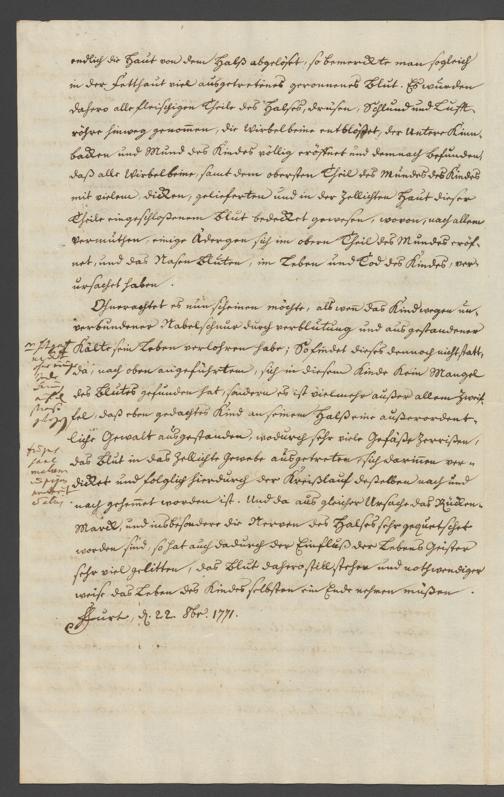 endlich die Haut von dem Halß abgelößet, so bemerckte man sogleich
in der Fetthaut viel ausgetretenes geronnenes Blut. Es wurden
dahero alle fleischigen Theile des Halses, drüsen, Schlund und Luft-
röhre hinweg genommen, die Wirbelbeine entblößet, der Untere Kinn-
backen und Mund des Kindes völlig eröffnet und demnach befunden,
daß alle Wirbelbeine, samt dem obersten Theil des Mundes des Kindes
mit vielem, dicken, gelieferten und in der Zellichten Haut dieser
Theile eingeschloßenem Blut bedecket gewesen, wovon, nach allem
vermuthen, einige Adergen, sich im obern Theil des Mundes eröf-
net, und das Nasen Bluten, im Leben und Tod des Kindes, ver-
ursachet haben.
Ohnerachtet es nun scheinen möchte, als wenn das Kind wegen un-
verbundener Nabelschnur durch verblutung und ausgestandener
Kälte sein Leben verlohren habe; So findet dieses dennoch nicht statt,
da, nach oben angeführtem, sich in diesem Kinde kein Mangel
des Blutes gefunden hat, sondern es ist vielmehr außer allem Zweif-
fel, daß eben gedachtes Kind an seinem Halß eine außerordent-
liche Gewalt ausgestanden, wodurch sehr viele Gefäße Zerrißen,
das Blut in das Zellichte Gewebe ausgetreten, sich darinnen ver-
dicket und folglich hierdurch der Kreißlauf deßelben nach und
nach gehemet worden ist. Und da aus gleicher Ursache das Rücken-
Marck, und insbesondere die Nerven des Halses sehr gequetschet
worden sind, so hat auch dadurch der Einfluß der Lebens Geister
sehr viel gelitten, das Blut dahero still stehen und nothwendiger
weise das Leben des Kindes selbsten ein Ende nehmen müßen.
Efurt, d. 22. 8br. 1771.